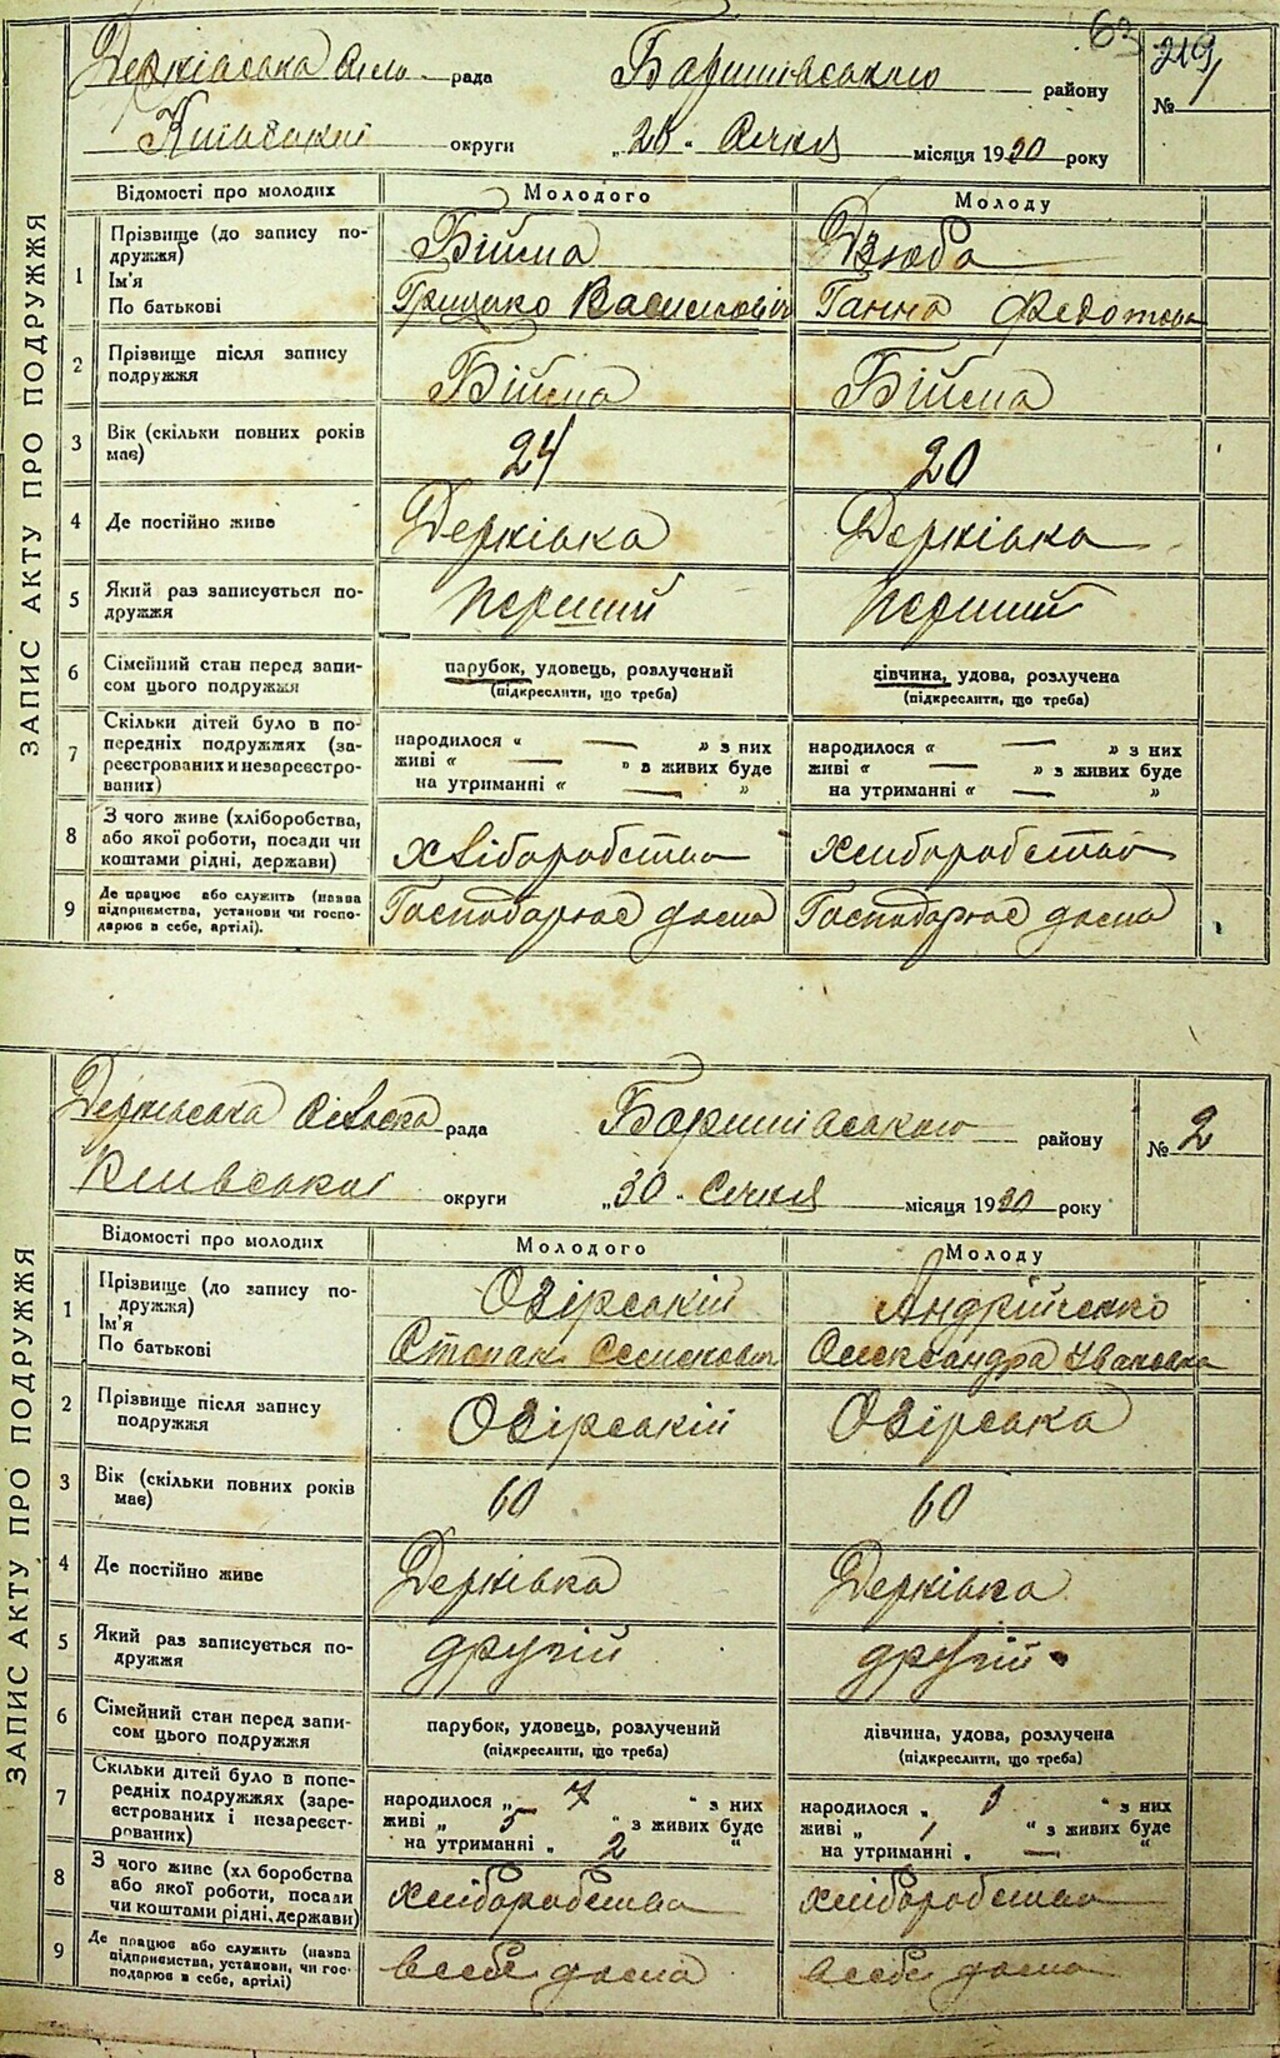 63
219
Дернівська сель рада Баришівського району № 1
Київської округи „28" Січня місяця 1930 року
ЗАПИС АКТУ ПРО ПОДРУЖЖЯ
Відомості про молодих Молодого Молоду
1 Прізвище (до запису по- Бійма Дзюба
дружжя)
Ім'я Грицько Василювіч Ганна Федотовн
По батькові
2 Прізвище після запису Бійма Бійма
подружжя
3 Вік (скільки повних років 24 20
має)
4 Де постійно живе Дернівка Дернівка
5 Який раз записується по- перший перший
дружжя
6 Сімейний стан перед запи- парубок, удовець, розлучений дівчина, удова, розлучена
сом цього подружжя (підкреслити, що треба) (підкреслити, що треба)
7 Скільки дітей було в по-
передніх подружжях (за- народилося « — » з них народилося « — » з них
реєстрованих и незареєстро- живі « — » з живих буде живі « — » з живих буде
ваних) на утриманні « — » на утриманні « — »
8 З чого живе (хліборобства,
або якої роботи, посади чи хліборобства хліборобства
коштами рідні, держави)
9 Де працює або служить (назва Господарює дома Господарює дома
підприємства, установи чи госпо-
дарює в себе, артілі).
Дернівська Сільська рада Баришівського району № 2
Київської округи „30" Січня місяця 1930 року
ЗАПИС АКТУ ПРО ПОДРУЖЖЯ
Відомості про молодих Молодого Молоду
1 Прізвище (до запису по- Озірській Андрійченко
дружжя)
Ім'я Степан Семенович Олександра Івановна
По батькові
2 Прізвище після запису Озірській Озірська
подружжя
3 Вік (скільки повних років 60 60
має)
4 Де постійно живе Дернівка Дернівка
5 Який раз записується по- другій другій
дружжя
6 Сімейний стан перед запи- парубок, удовець, розлучений дівчина, удова, розлучена
сом цього подружжя (підкреслити, що треба) (підкреслити, що треба)
7 Скільки дітей було в попе-
редніх подружжях (заре- народилося „ 7 " з них народилося „ " з них
єстрованих і незареєст- живі „ 5 " з живих буде живі „ 1 " з живих буде
рованих) на утриманні „ 2 " на утриманні „ — "
8 З чого живе (хл боробства
або якої роботи, посади хліборобства хліборобства
чи коштами рідні, держави)
9 Де працює або служить (назва всебе дома всебе дома
підприємства, установи, чи гос-
подарює в себе, артілі)